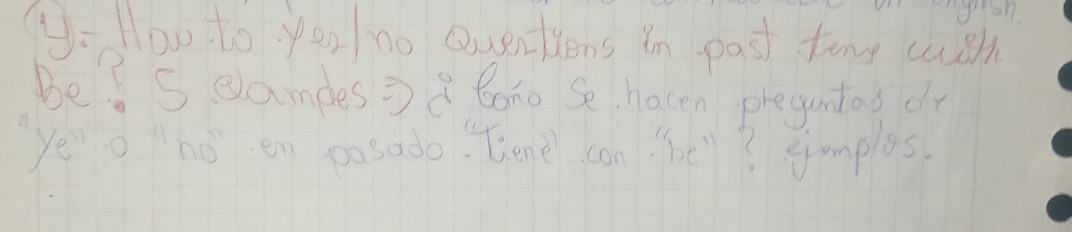 English.
y:- How to yes/no Questions in past tens with
Be? 5 examples => ¿ Como se hacen preguntas de
"ye" o "no" en pasado "tiene" con "be"? ejemplos.